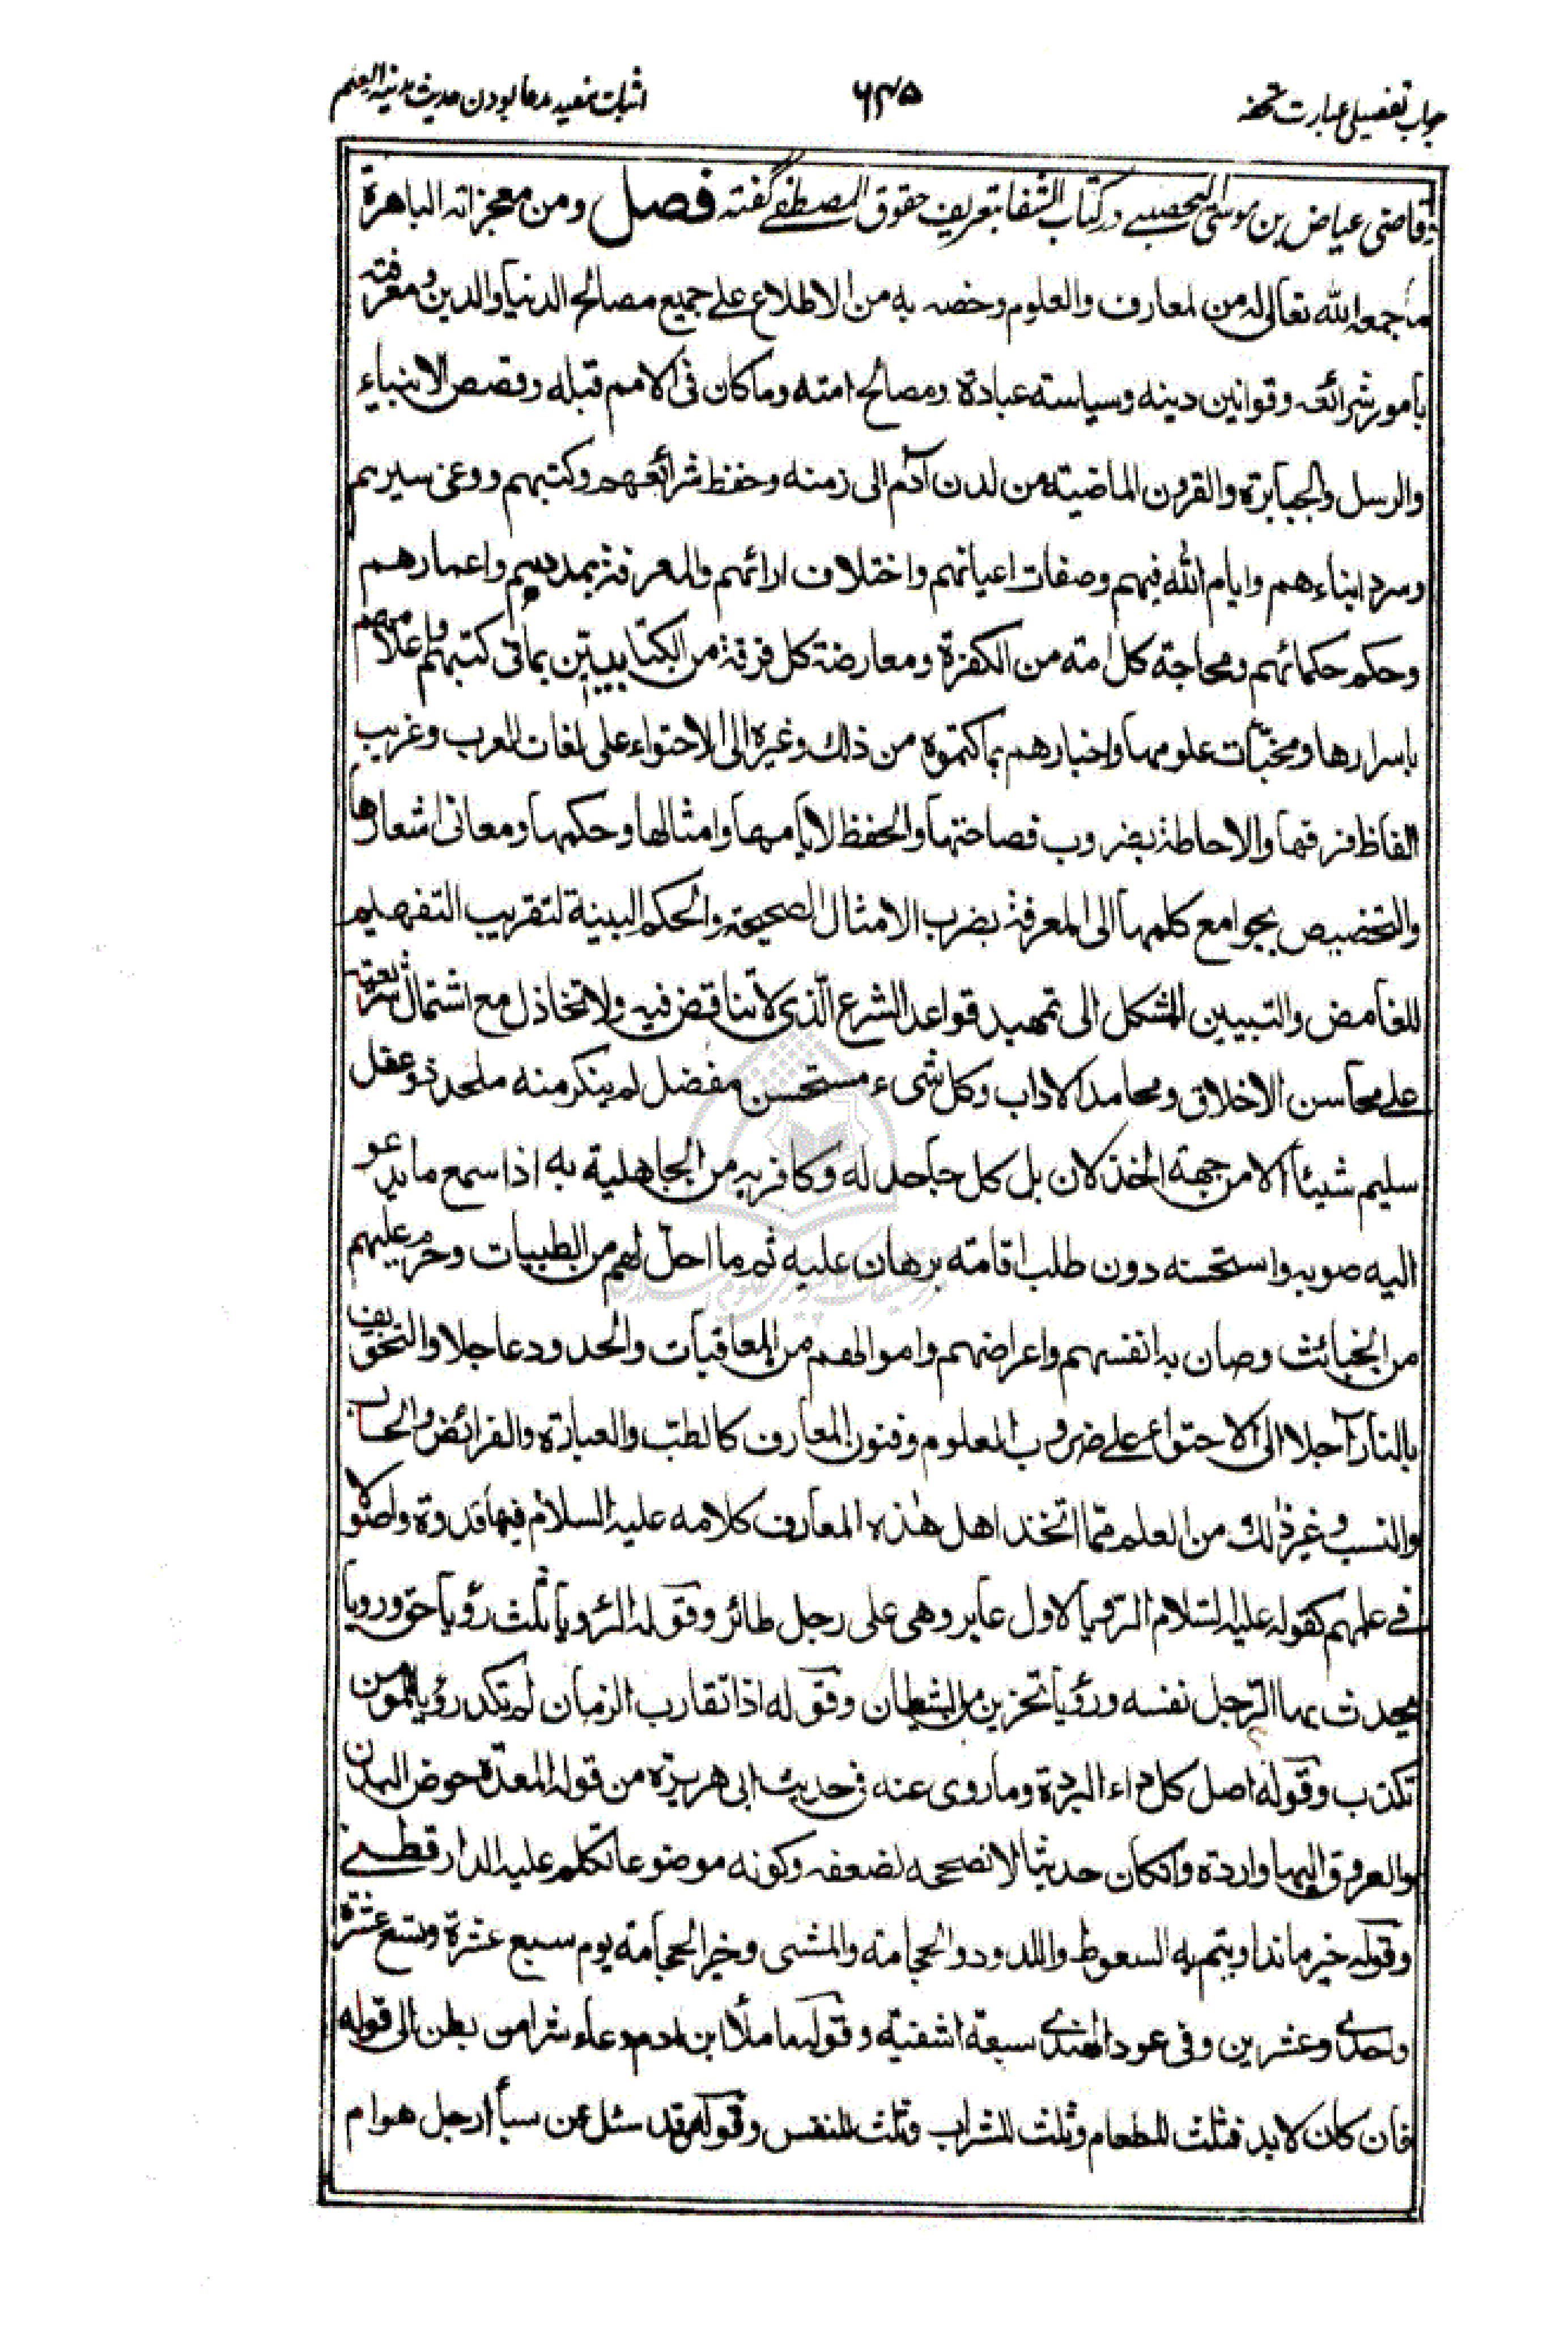 جواب تفصیلی عبارت تحفه
۶۴۵
اثبات مفید مدعا بودن حدیث مدینة العلم
و قاضی عیاض بن موسی الیحصبی در کتاب الشفا بتعریف حقوق المصطفی گفته فصل ومن معجزاته الباهرة
ما جمعه الله تعالی له من المعارف والعلوم وخصه به من الاطلاع علی جمیع مصالح الدنیا والدین ومعرفته
بامور شرائعه وقوانین دینه وسیاسته عباده ومصالح امته وماکان فی الامم قبله وقصص الانبیاء
والرسل والجبابرة والقرون الماضیة من لدن آدم الی زمنه وحفظ شرائعهم وکتبهم ووعی سیرهم
وسرد انباءهم وایام الله فیهم وصفات اعیانهم واختلاف ارائهم والمعرفة بمددهم واعمارهم
وحکم حکمائهم ومحاجة کل امة من الکفرة ومعارضة کل فرقة من الکتابیین بما فی کتبهم واعلامهم
باسرارها ومخبآت علومها واخبارهم بما کتموه من ذلك وغیره الی الاحتواء علی لغات العرب وغریب
الفاظ فرقها والاحاطة بضروب فصاحتها والحفظ لایامها وامثالها وحکمها ومعانی اشعارها
والتخصیص بجوامع کلمها الی المعرفة بضرب الامثال الصحیحة والحکم البینة لتقریب التفهیم
للغامض والتبیین للمشکل الی تمهید قواعد الشرع الّذی لا تناقض فیه ولا تخاذل مع اشتمال شریعته
علی محاسن الاخلاق ومحامد الاداب وکل شیء مستحسن مفضل لم ینکر منه ملحد ذو عقل
سلیم شیئا الا من جهة الخذلان بل کل جاحد له وکافر به من الجاهلیة به اذا سمع ما یدعو
الیه صوبه واستحسنه دون طلب اقامة برهان علیه ثم ما احلّ لهم من الطیبات وحرم علیهم
من الخبائث وصان به انفسهم واعراضهم واموالهم من المعاقبات والحدود عاجلا والتخویف
بالنار آجلا الی الاحتواء علی ضروب العلوم وفنون المعارف کالطبّ والعبارة والفرائض والحساب
والنسب وغیر ذلك من العلم ممّا اتخذ اهل هذه المعارف کلامه علیه السلام فیها قدوة واصولا
فی علمهم کقوله علیه السّلام الرّؤیا لاول عابر وهی علی رجل طائر وقوله الرؤیا ثلث رؤیا حق ورویا
یحدث بها الرّجل نفسه ورؤیا تحزین من الشیطان وقوله اذا تقارب الزمان لم تکد رؤیا المؤمن
تکذب وقوله اصل کل داء البردة وما روی عنه فی حدیث ابی هریرة من قوله المعدة حوض البدن
والعروق الیها واردة وان کان حدیثا لا نصححه لضعفه وکونه موضوعا تکلم علیه الدارقطنی
وقوله خیر ما تداویتم به السعوط واللدود والحجامة والمشی وخیر الحجامة یوم سبع عشرة وتسع عشرة
واحدی وعشرین وفی عود الهندی سبعة اشفیة وقوله ما ملأ ابن ادم وعاء شرا من بطن الی قوله
فان کان لابد فثلث للطعام وثلث للشراب وثلث للنفس وقوله وقد سئل عن سبأ ارجل هو ام